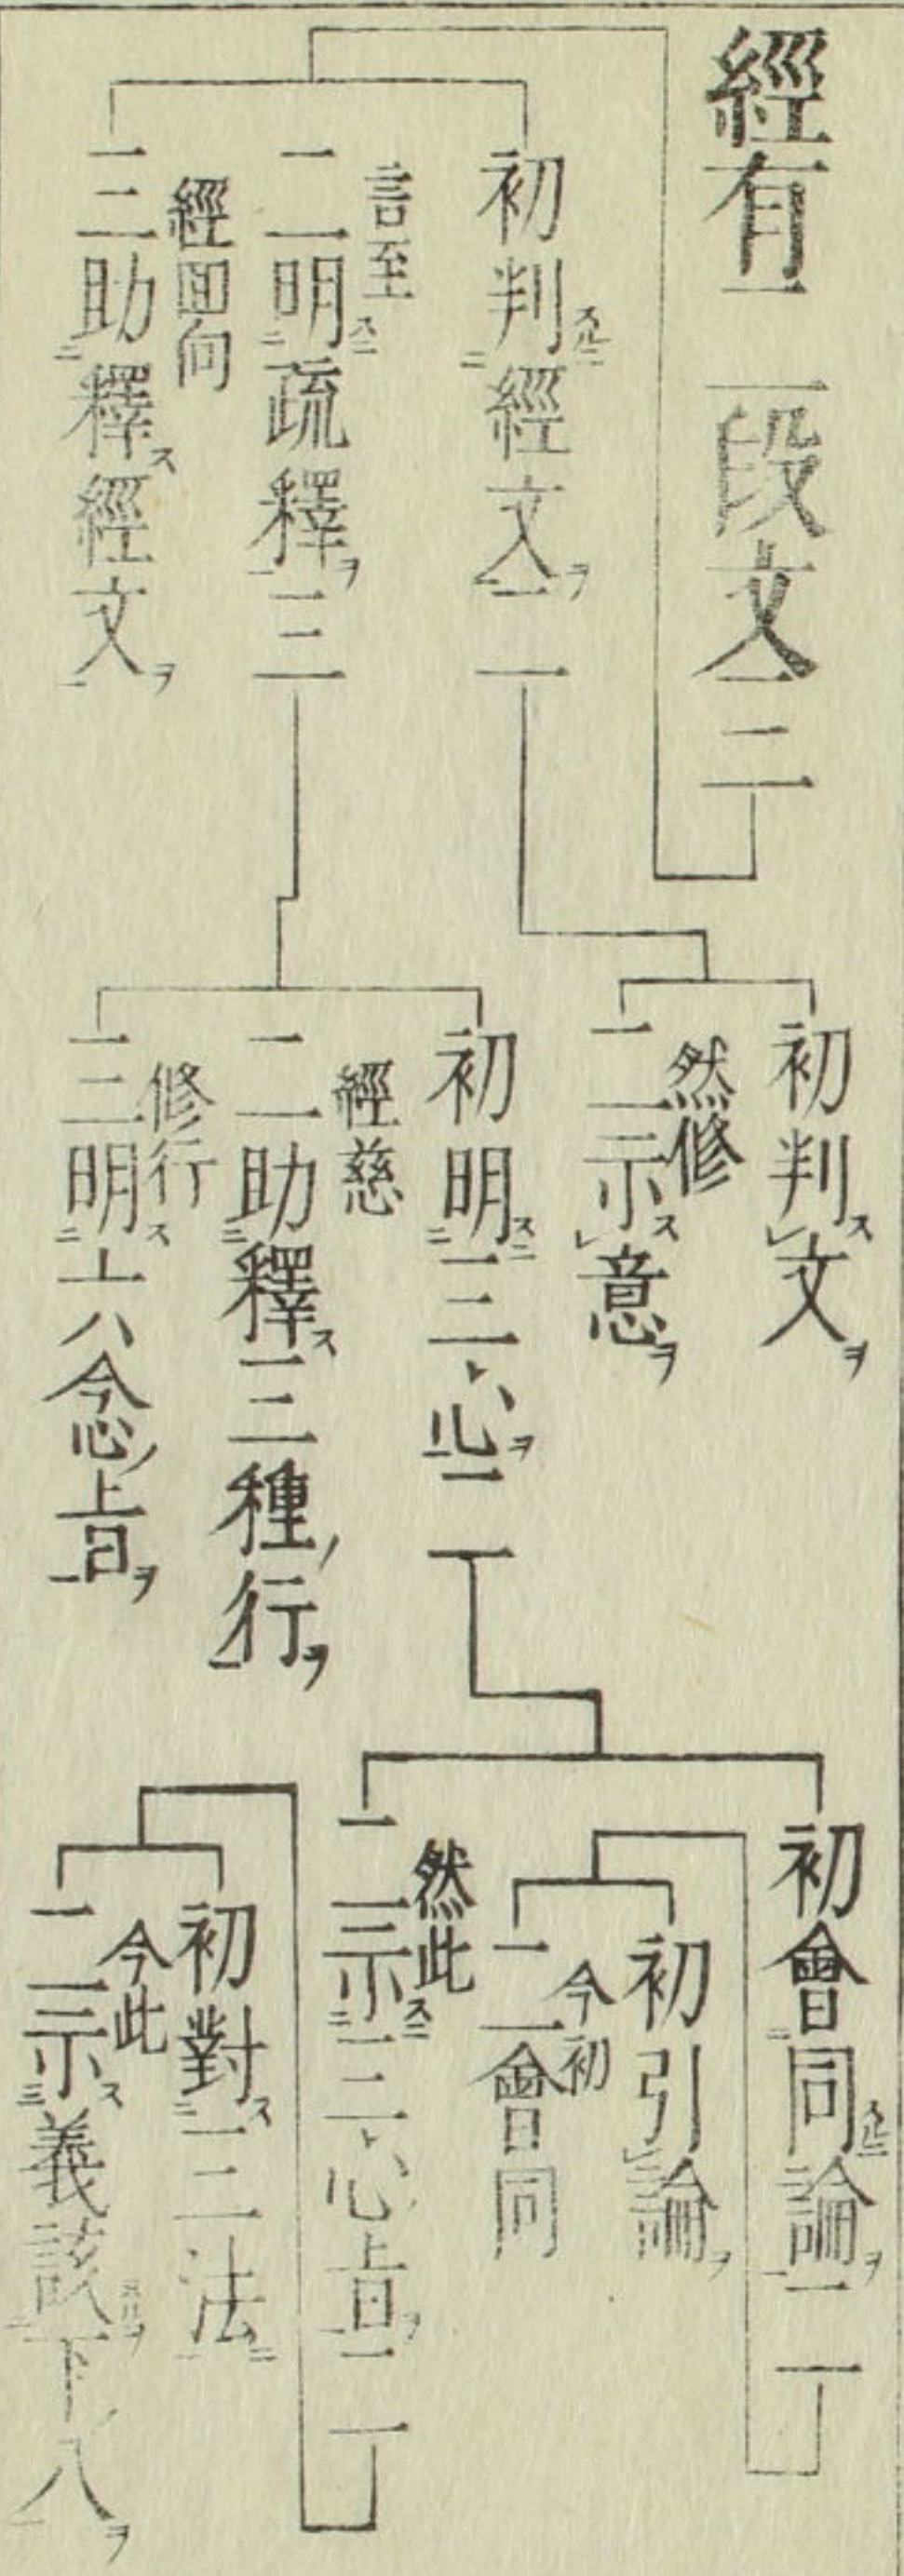 經有二段文三
初判經文二
言至
二明疏釋三
經面向
三助釋經文
初判文
然修
二示意
初明三心二
經慈
二助釋三種行
修行
三明六念旨
初會同論二
初引論
今初
二會同
然此
二示三心旨二
初對三法
今此
二示義該下八